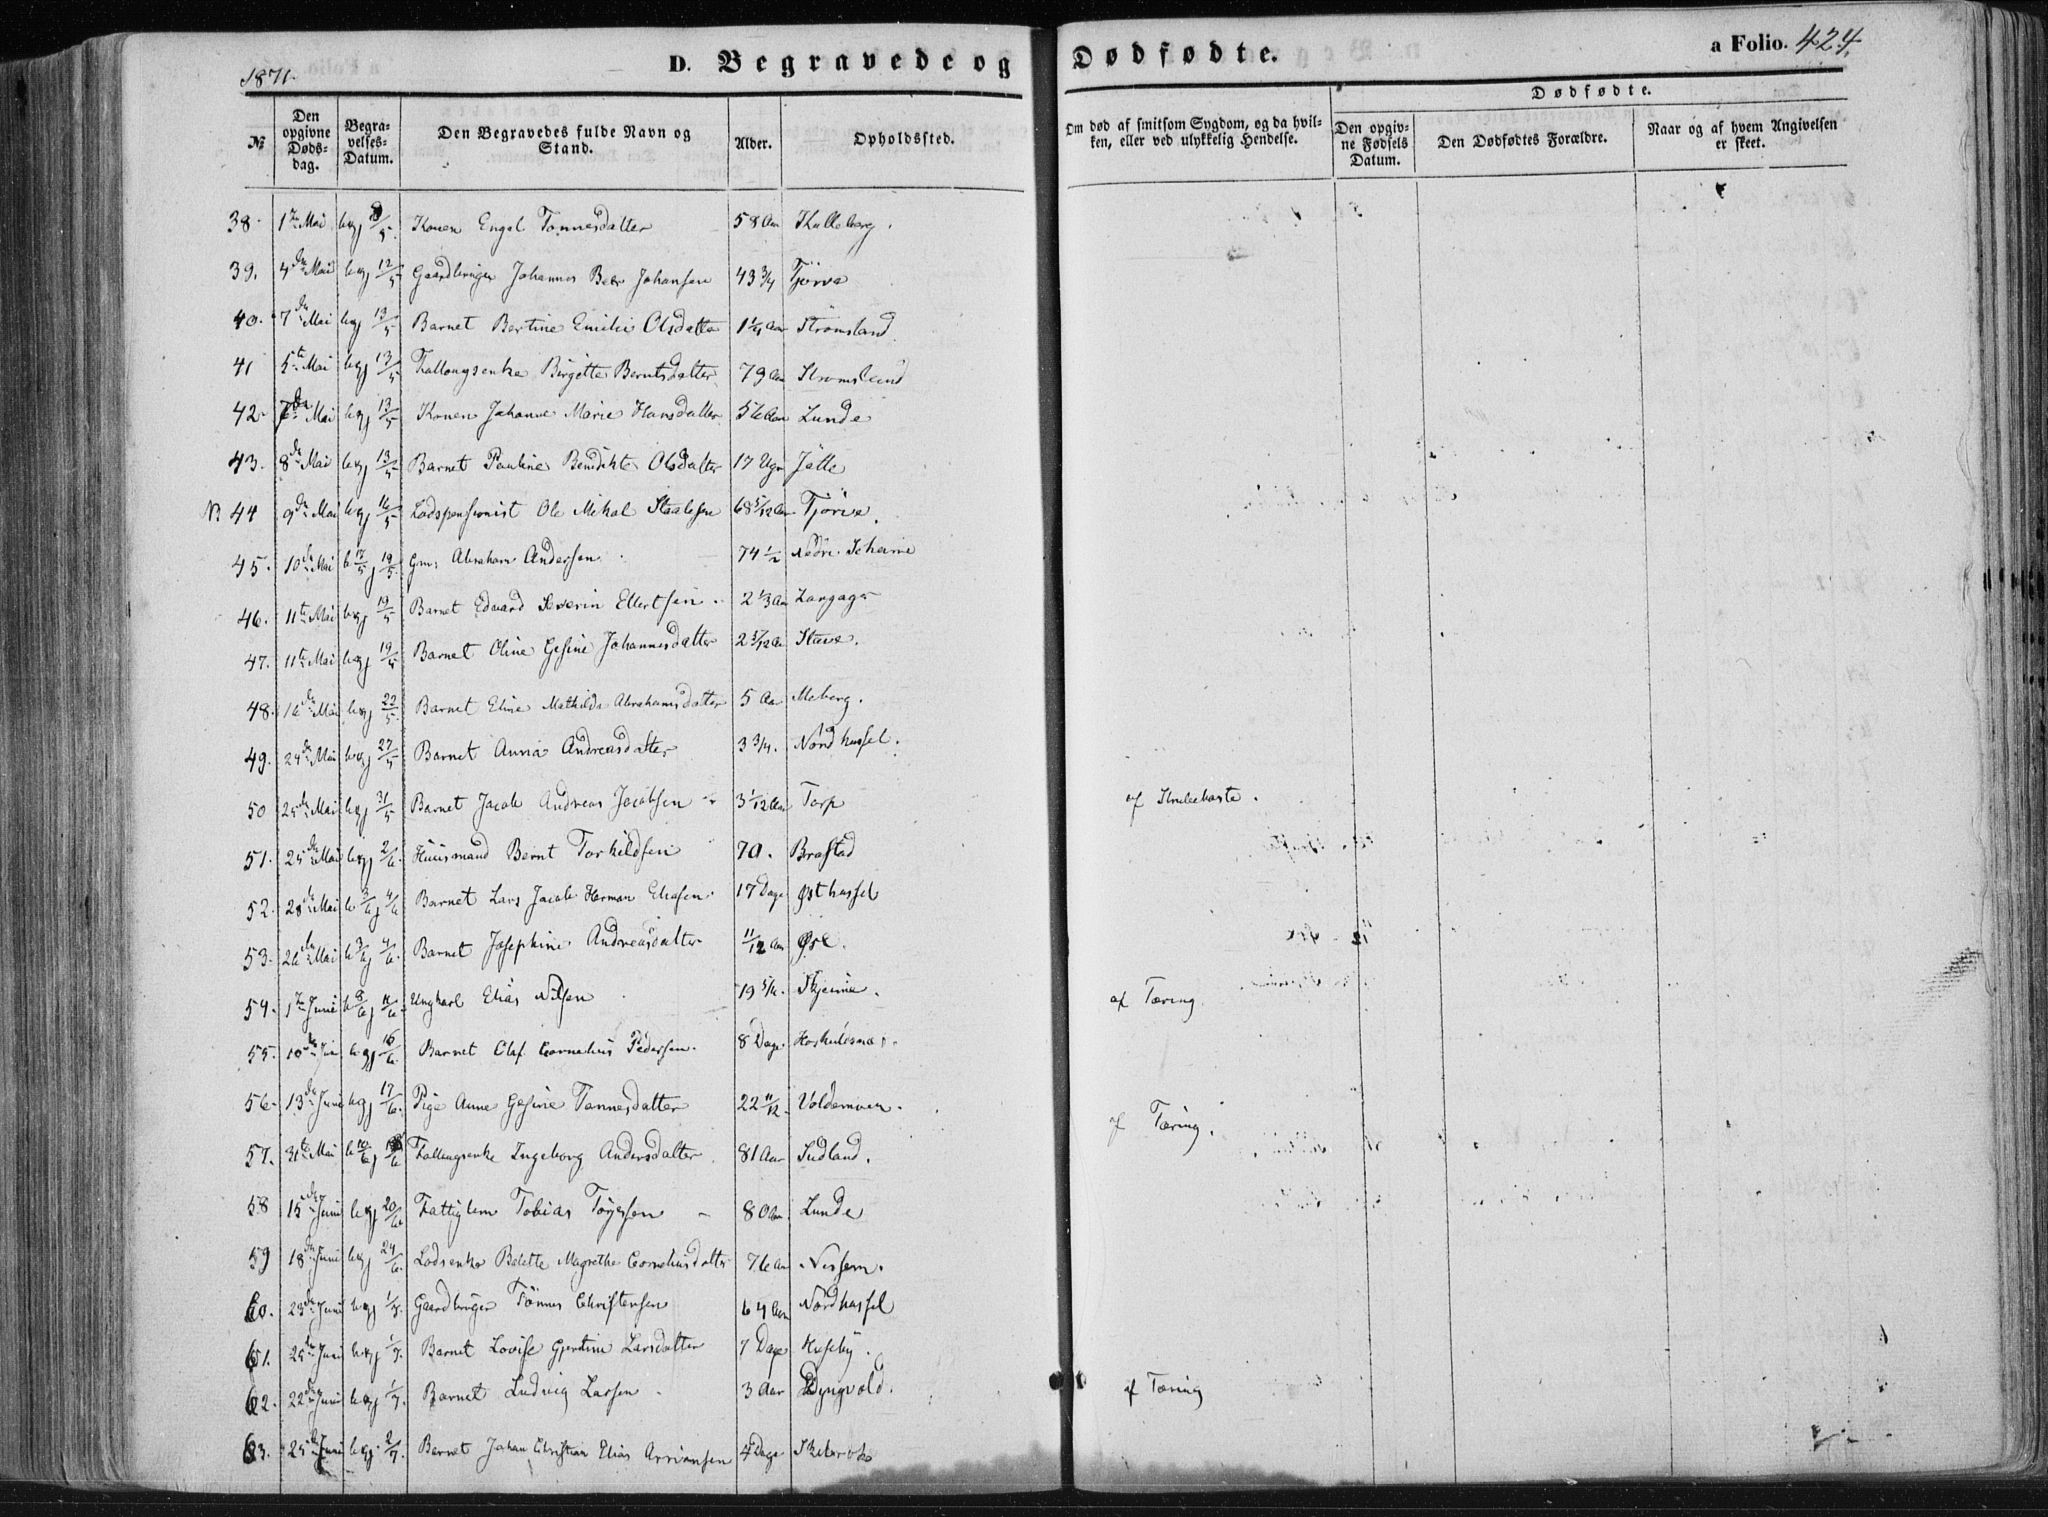 1871.
D. Begravede og Dødfødte.
a Folio. 424.
Dødfødte.
№ Den opgivne Døds- dag. Begra- velses- Datum. Den Begravedes fulde Navn og Stand. Alder. Opholdssted. Om død af smitsom Sygdom, og da hvil- ken, eller ved ulykkelig Hendelse. Den opgiv- ne Fødsels Datum. Den Dødfødtes Forældre. Naar og af hvem Angivelsen er skeet.
38. 1 Mai Konen Engel Tønnesdatter 58 Aar Kalleberg.
39. 4de Mai 12/5 Gaardbruger Johannes Beer Johansen 43 3/4 Tjörve
40. 7de Mai 13/5 Barnet Bertine Emilie Olsdatter Aar Strömsland
41 5te Mai 13/5 Birgitte Berntsdatter 79 Aar Strømsland
42. 7de Mai 13/5 Konen Johanne Marie Hansdatter 56 Aar Lunde
43. 8de Mai 13/5 Barnet Pauline Benedikte Olsdatter 17 Ugr Jölle
№ 44 9de Mai 16/5 Lodspensionist Ole Mikal Staalesen 68 5/12 Aar Tjörve.
45. 10de Mai b 17/5 j 19/5 Gm: Abraham Andersen 74 1/2 Nedre Skeime
46. 11te Mai 19/5 Barnet Edvard Severin Ellertsen 2 1/3 Aar Langager
47. 11te Mai 19/5 Barnet Oline Gesine Johannesdatter 2 5/12 Aar Stave.
48. 16de Mai 23/5 Barnet Eline Mathilde Abrahamsdatter 5 Aar Meberg.
49. 24de Mai 27/5 Barnet Anna Andreasdatter 3 3/4. Nordhassel.
50 25de Mai 31/5 Barnet Jacob Andreas Jacobsen 3 1/12 Aar Torp af Strubehoste.
51. 25de Mai 2/6. Huusmand Bernt Torkildsen 70. Brastad
52. 28de Mai b 3/6 j 4/6 Barnet Lars Jacob Herman Eliasen 17 Dage Østhassel
53. 26de Mai b 3/6 j 4/6. Barnet Josephine Andreasdatter 11/12 Aar Øre.
54. 1 Juni b 8/6 j 11/6 Ungkarl Elias Nilsen 19 Skjeime. af Tæring
55. 10de Juni 16/6. Barnet Olaf Cornelius Pedersen. 8 Dage
56. 13de Juni 17/6. Pige Anne Gesine Tønnesdatter 22 11/12. Voldemoen. af Tæring.
57. 31te Mai b 10/6 Ingeborg Andersdatter 81 Aar Sudland.
58 15de Juni 20/6 Fattiglem Tobias 80 Aar. Lunde
59 18de Juni 24/6. Lodsenke Belette Magrethe Cornelius datter 76 Aar
60. 23de Juni 1/7. Gaardbruger Tönnes Christensen 64 Aar Nordhassel
61. 25de Juni 1/7. Barnet Lovise Gjertine Larsdatter 7 Dage Huseby.
62. 22de Juni 1/7. Barnet Ludvig Larsen 3 Aar Dyngvold. af Tæring
63. 25de Juni 2/7. Barnet Johan Christian Elias 4 Dage